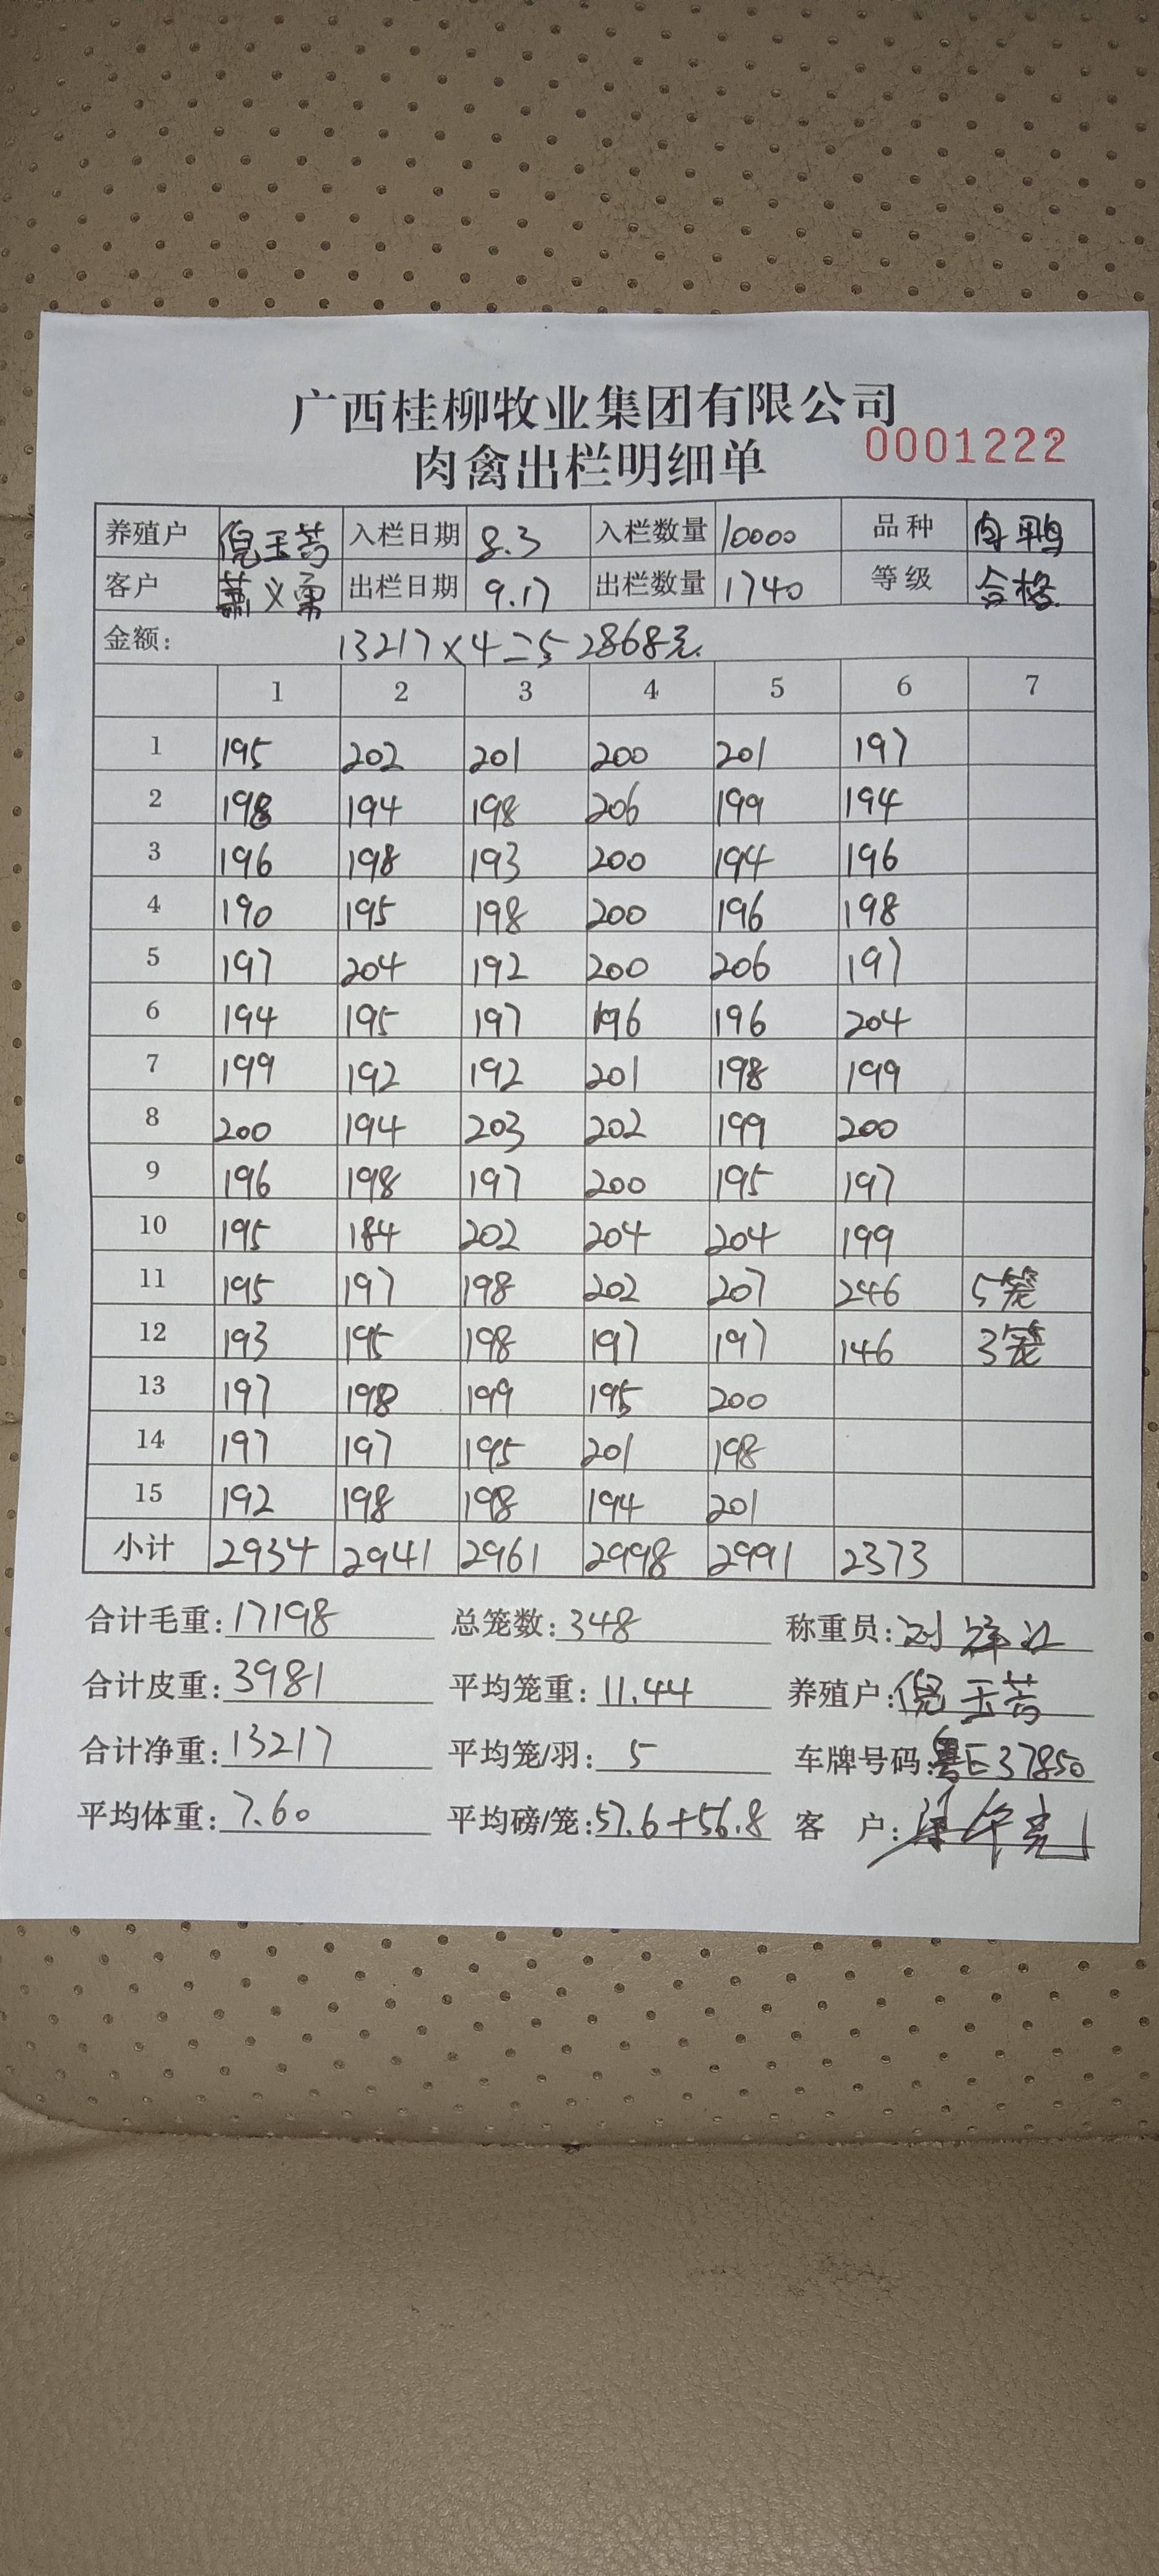 广西桂柳牧业集团有限公司
肉禽出栏明细单 0001222
养殖户 倪玉芳 入栏日期 8.3 入栏数量 10000 品种 肉鸭
客户 萧义勇 出栏日期 9.17 出栏数量 1740 等级 合格
金额: 13217×4=52868元.
1 2 3 4 5 6 7
1 195 202 201 200 201 197
2 198 194 198 206 199 194
3 196 198 193 200 194 196
4 190 195 198 200 196 198
5 197 204 192 200 206 197
6 194 195 197 196 196 204
7 199 192 192 201 198 199
8 200 194 203 202 199 200
9 196 198 197 200 195 197
10 195 184 202 204 204 199
11 195 197 198 202 207 246 5笼
12 193 195 198 197 197 146 3笼
13 197 198 199 195 200
14 197 197 195 201 198
15 192 198 198 194 201
小计 2934 2941 2961 2998 2991 2373
合计毛重: 17198 总笼数: 348 称重员:
合计皮重: 3981 平均笼重: 11.44 养殖户: 倪玉芳
合计净重: 13217 平均笼/羽: 5 车牌号码: 粤E37850
平均体重: 7.60 平均磅/笼: 57.6+56.8 客 户: